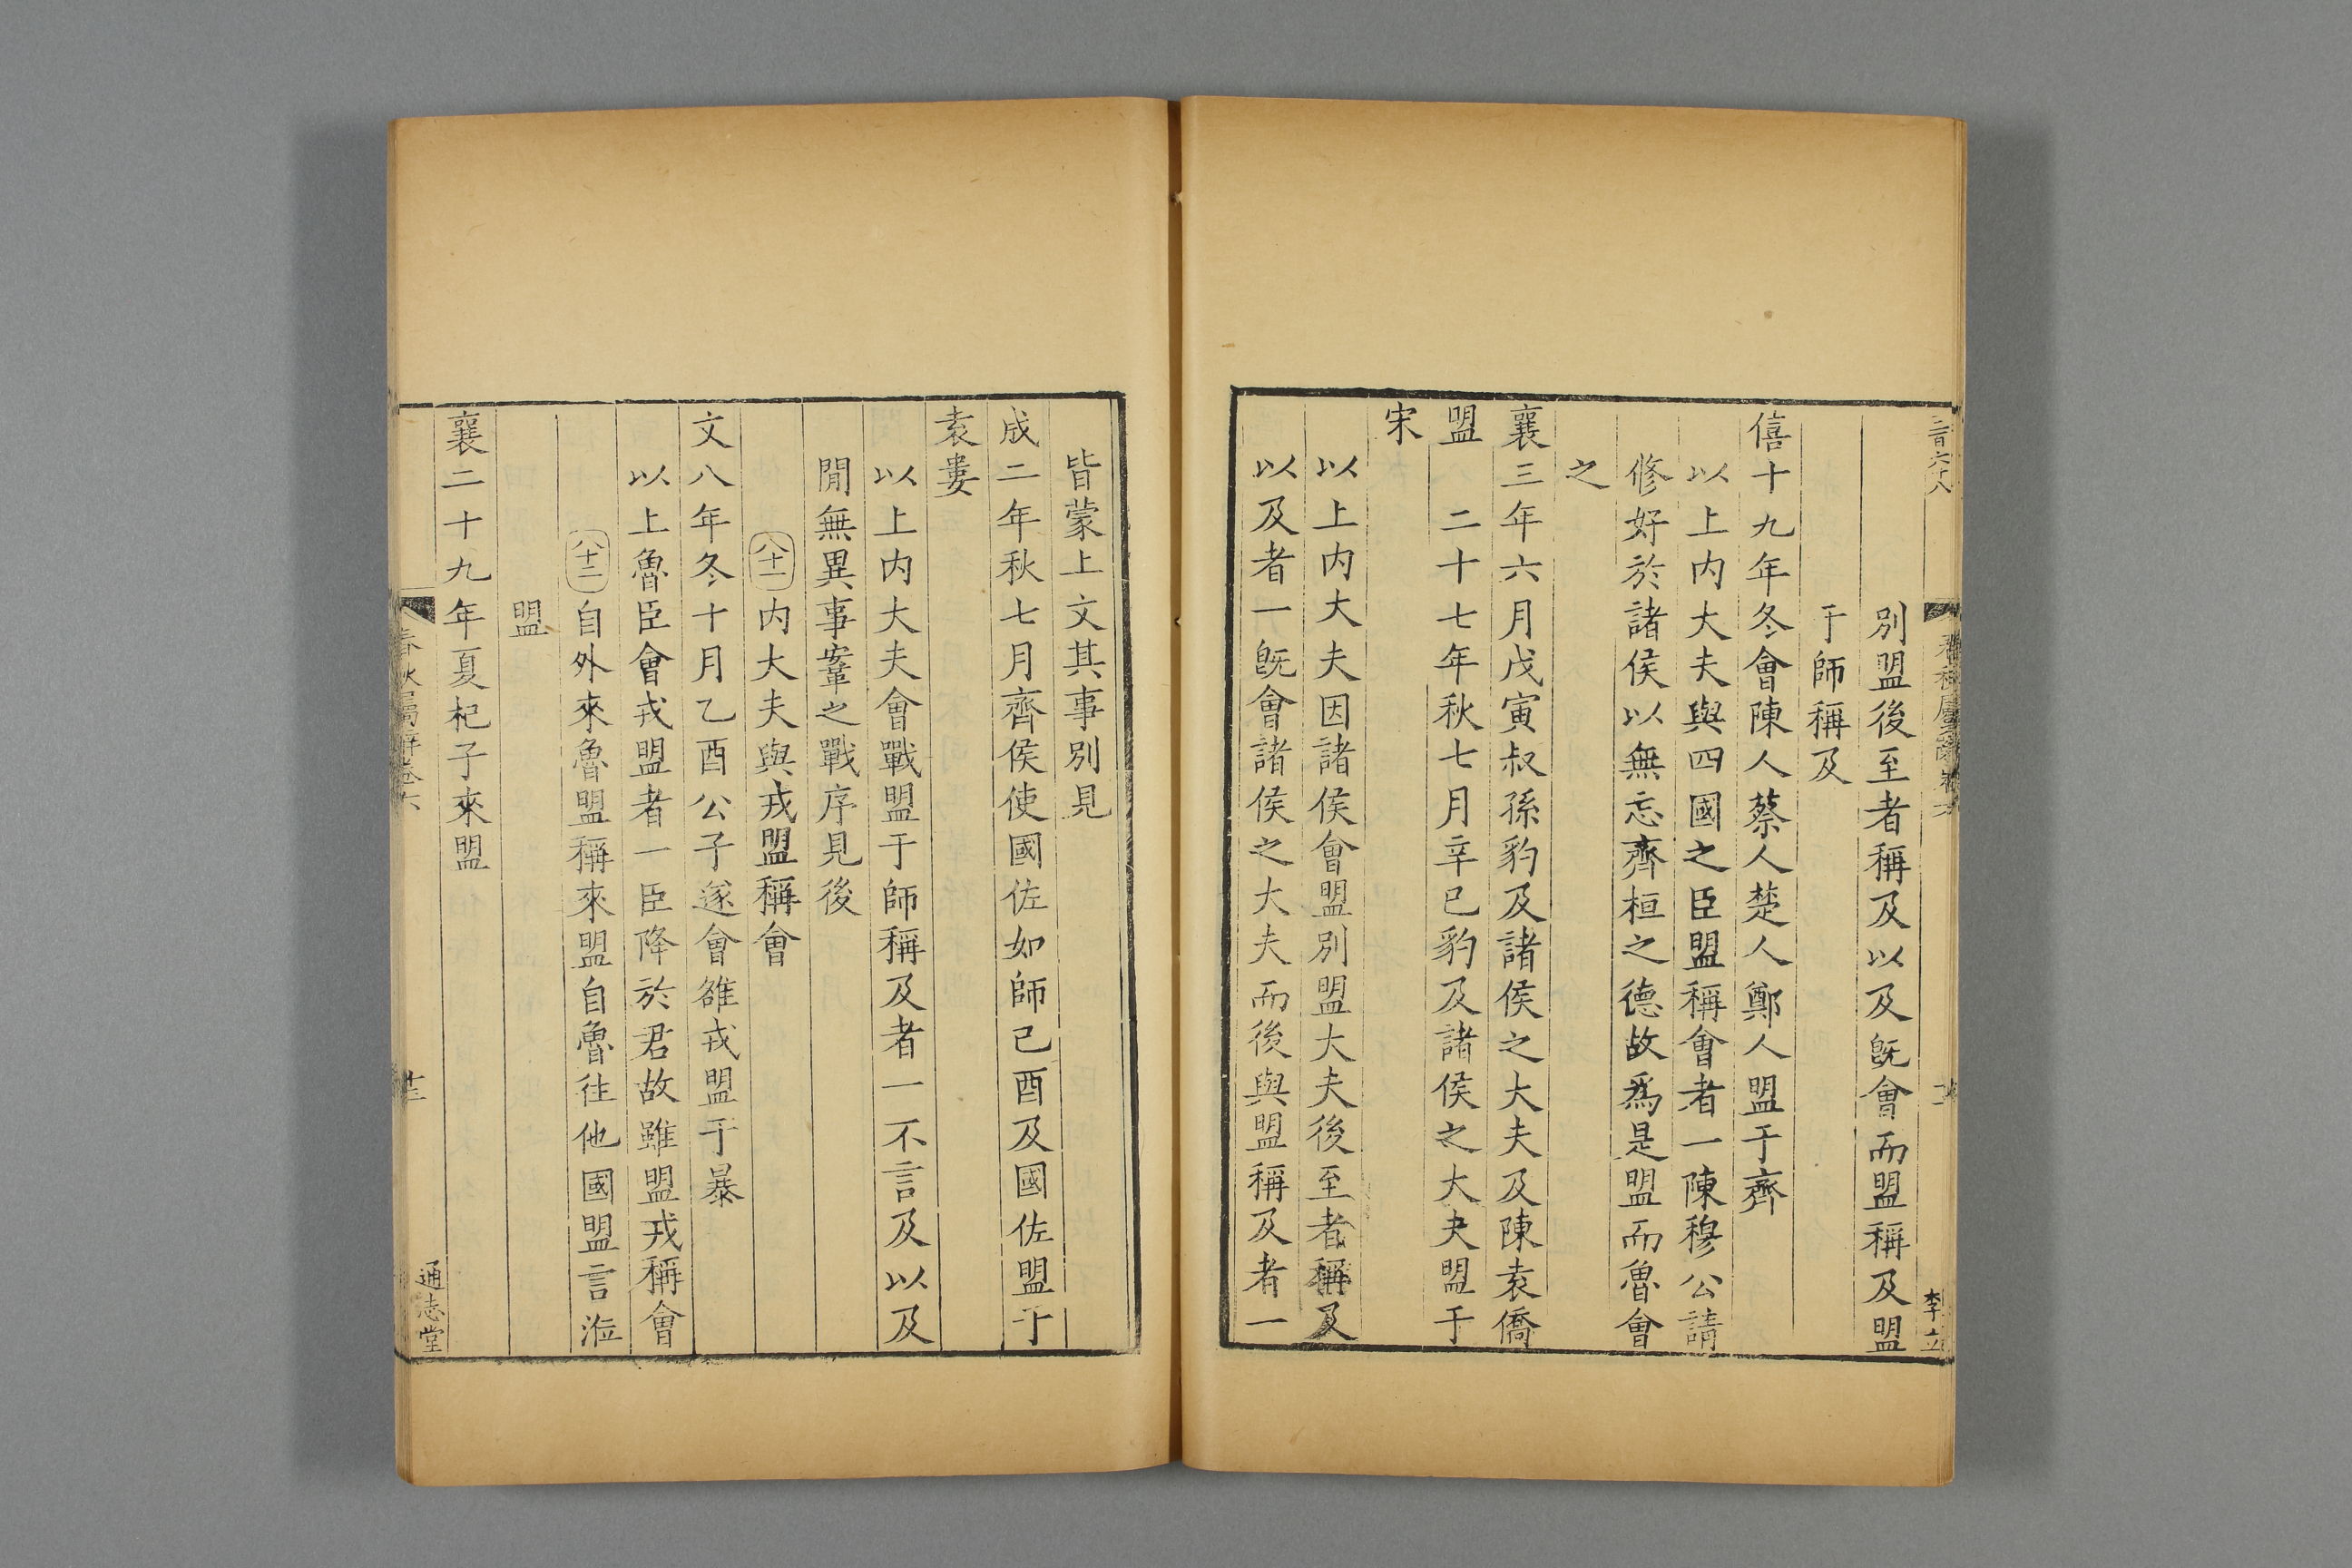 別盟後至者稱及以及旣會而盟稱及盟
于師稱及
僖十九年冬會陳人蔡人楚人鄭人盟于齊
以上内大夫與四國之臣盟稱會者一陳穆公請
修好於諸侯以無忘齊桓之德故爲是盟而魯會
之
襄三年六月戊寅叔孫豹及諸侯之大夫及陳袁僑
盟 二十七年秋七月辛巳豹及諸侯之大夫盟于
宋
以上内大夫因諸侯會盟別盟大夫後至者稱及
以及者一旣會諸侯之大夫而後與盟稱及者一
三百六十八
李立
皆蒙上文其事別見
成二年秋七月齊侯使國佐如師己酉及國佐盟于
袁婁
以上内大夫會戰盟于師稱及者一不言及以及
閒無異事鞌之戰序見後
八十一内大夫與戎盟稱會
文八年冬十月乙酉公子遂會雒戎盟于暴
以上魯臣會戎盟者一臣降於君故雖盟戎稱會
八十二自外來魯盟稱來盟自魯往他國盟言涖
盟
襄二十九年夏杞子來盟
春秋屬辭卷六
通志堂